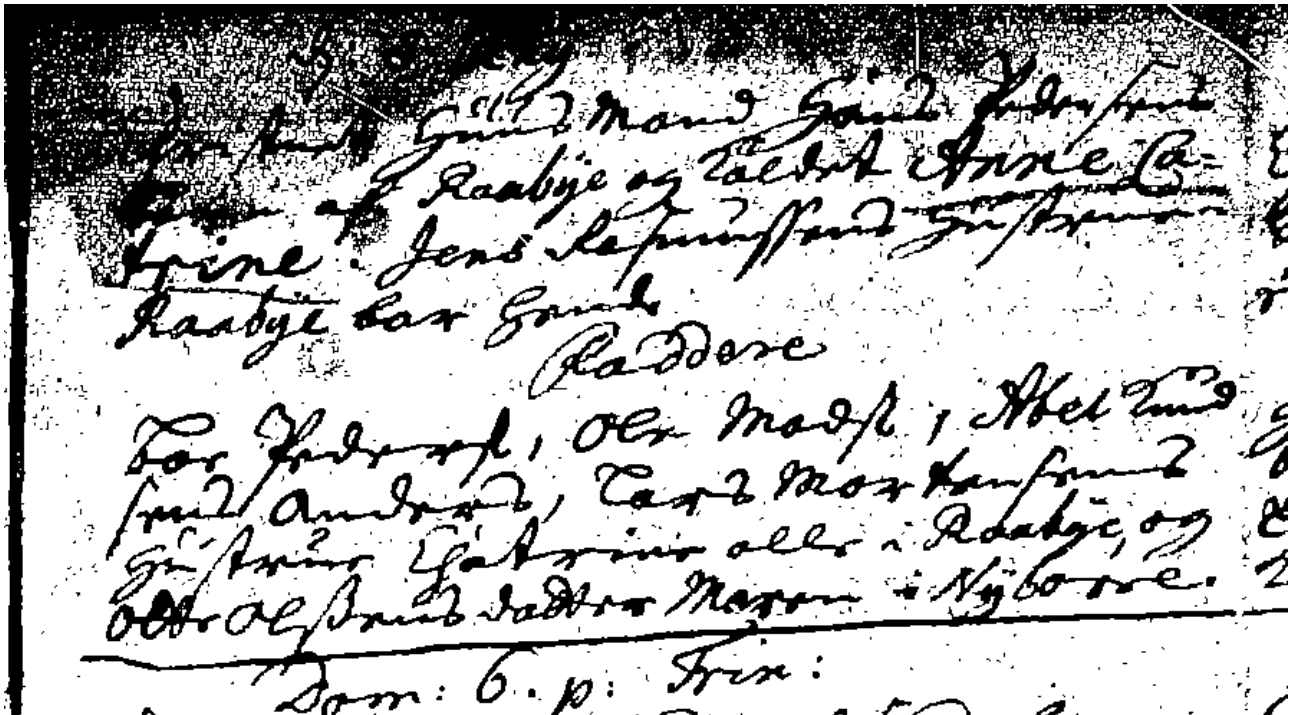 Christnet Huus Mand Hans Pedersens
barn af Raabÿe og kaldet Anne Ca=
trine. Jens Rasmussens Hustrue
Raabÿe bar hende
Faddere
Boe Peders., Ole Mads., Abel Knud
sens Anders, Lars Mortensens
Hustrue Chatrine alle i Raabÿe, og
Olsens dadter Maren i Nÿborre.
Dom: 6. p: Trin: